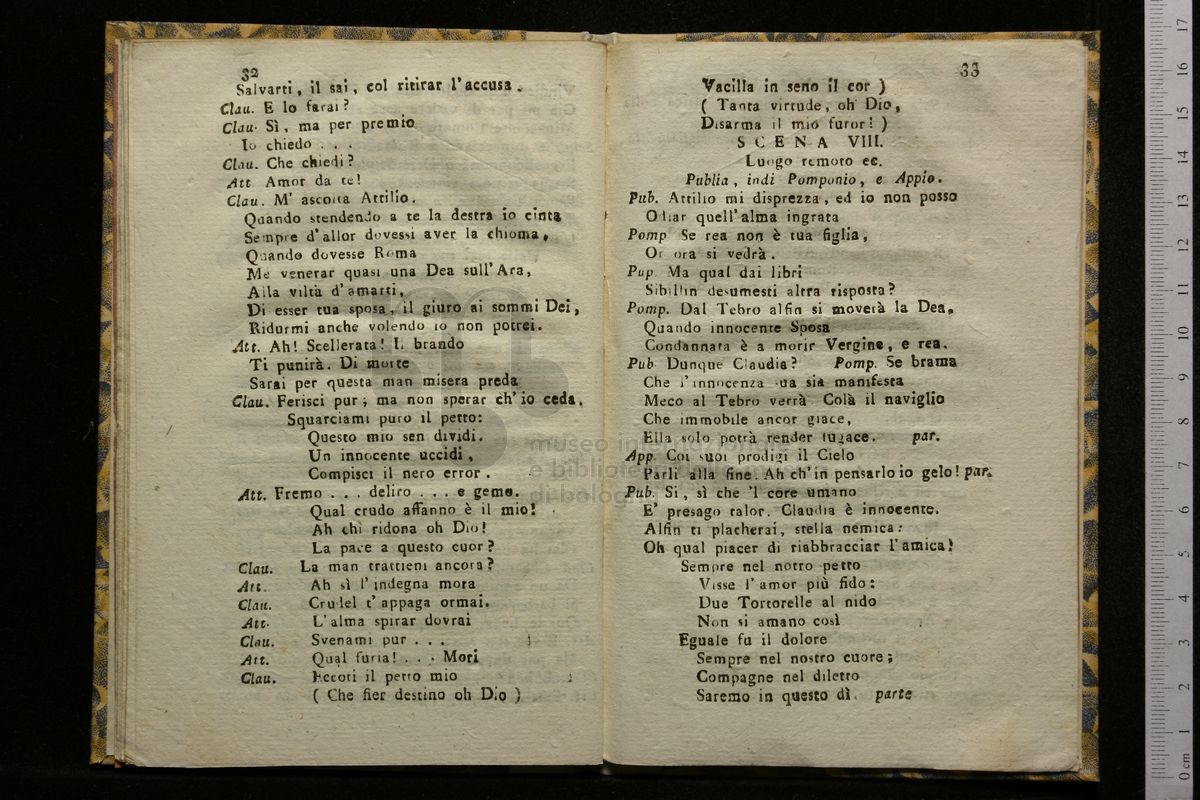 32
Salvarti, il sai, col ritirar l'accusa.
Clau. E lo farai?
Clau. Sì, ma per premio
Io chiedo . . .
Clau. Che chiedi?
Att Amor da te!
Clau. M' ascolta Attilio.
Quando stendendo a te la destra io cinta
Sempre d'allor dovessi aver la chioma,
Quando dovesse Roma
Me venerar quasi una Dea sull'Ara,
Alla viltà d'amarti,
Di esser tua sposa, il giuro ai sommi Dei,
Ridurmi anche volendo io non potrei.
Att. Ah! Scellerata! Il brando
Ti punirà. Di morte
Sarai per questa man misera preda
Clau. Ferisci pur; ma non sperar ch'io ceda.
Squarciami puro il petto:
Questo mio sen dividi.
Un innocente uccidi,
Compisci il nero error.
Att. Fremo . . . deliro . . . e gemo.
Qual crudo affanno è il mio!
Ah chi ridona oh Dio!
La pace a questo cuor?
Clau. La man trattieni ancora?
Att. Ah sì l'indegna mora
Clau. Crudel t'appaga ormai.
Att. L'alma spirar dovrai
Clau. Svenami pur . . .
Att. Qual furia! . . . Mori
Clau. Eccoti il petto mio
( Che fier destino oh Dio )
33
Vacilla in seno il cor )
( Tanta virtude, oh Dio,
Disarma il mio furor! )
SCENA VIII.
Luogo remoto ec.
Publia, indi Pomponio, e Appio.
Pub. Attilio mi disprezza, ed io non posso
Odiar quell'alma ingrata
Pomp Se rea non è tua figlia,
Or ora si vedrà.
Pup. Ma qual dai libri
Sibillin desumesti altra risposta?
Pomp. Dal Tebro alfin si moverà la Dea,
Quando innocente Sposa
Condannata è a morir Vergine, e rea.
Pub. Dunque Claudia? Pomp. Se brama
Che l'innocenza sua sia manifesta
Meco al Tebro verrà. Colà il naviglio
Che immobile ancor giace,
Ella solo potrà render fugace. par.
App. Coi suoi prodigi il Cielo
Parli alla fine. Ah ch'in pensarlo io gelo! par.
Pub. Sì, sì che 'l core umano
E' presago talor. Claudia è innocente.
Alfin ti placherai, stella nemica:
Oh qual piacer di riabbracciar l'amica!
Sempre nel notro petto
Visse l'amor più fido:
Due Tortorelle al nido
Non si amano così
Eguale fu il dolore
Sempre nel nostro cuore;
Compagne nel diletto
Saremo in questo dì. parte